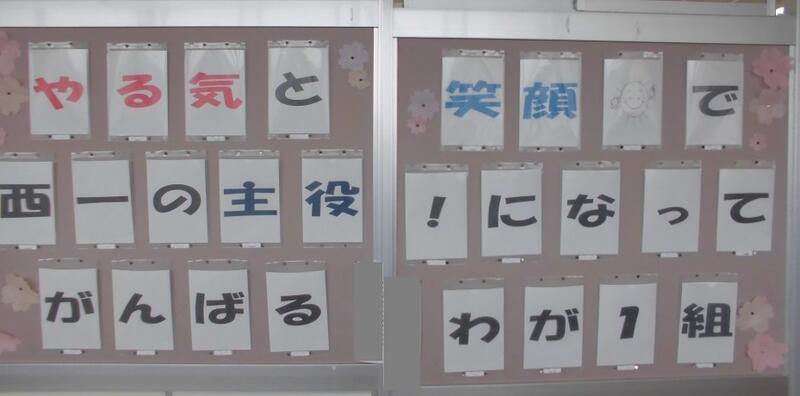 やる気と笑顔で
西一の主役！になって
がんばるわが1組